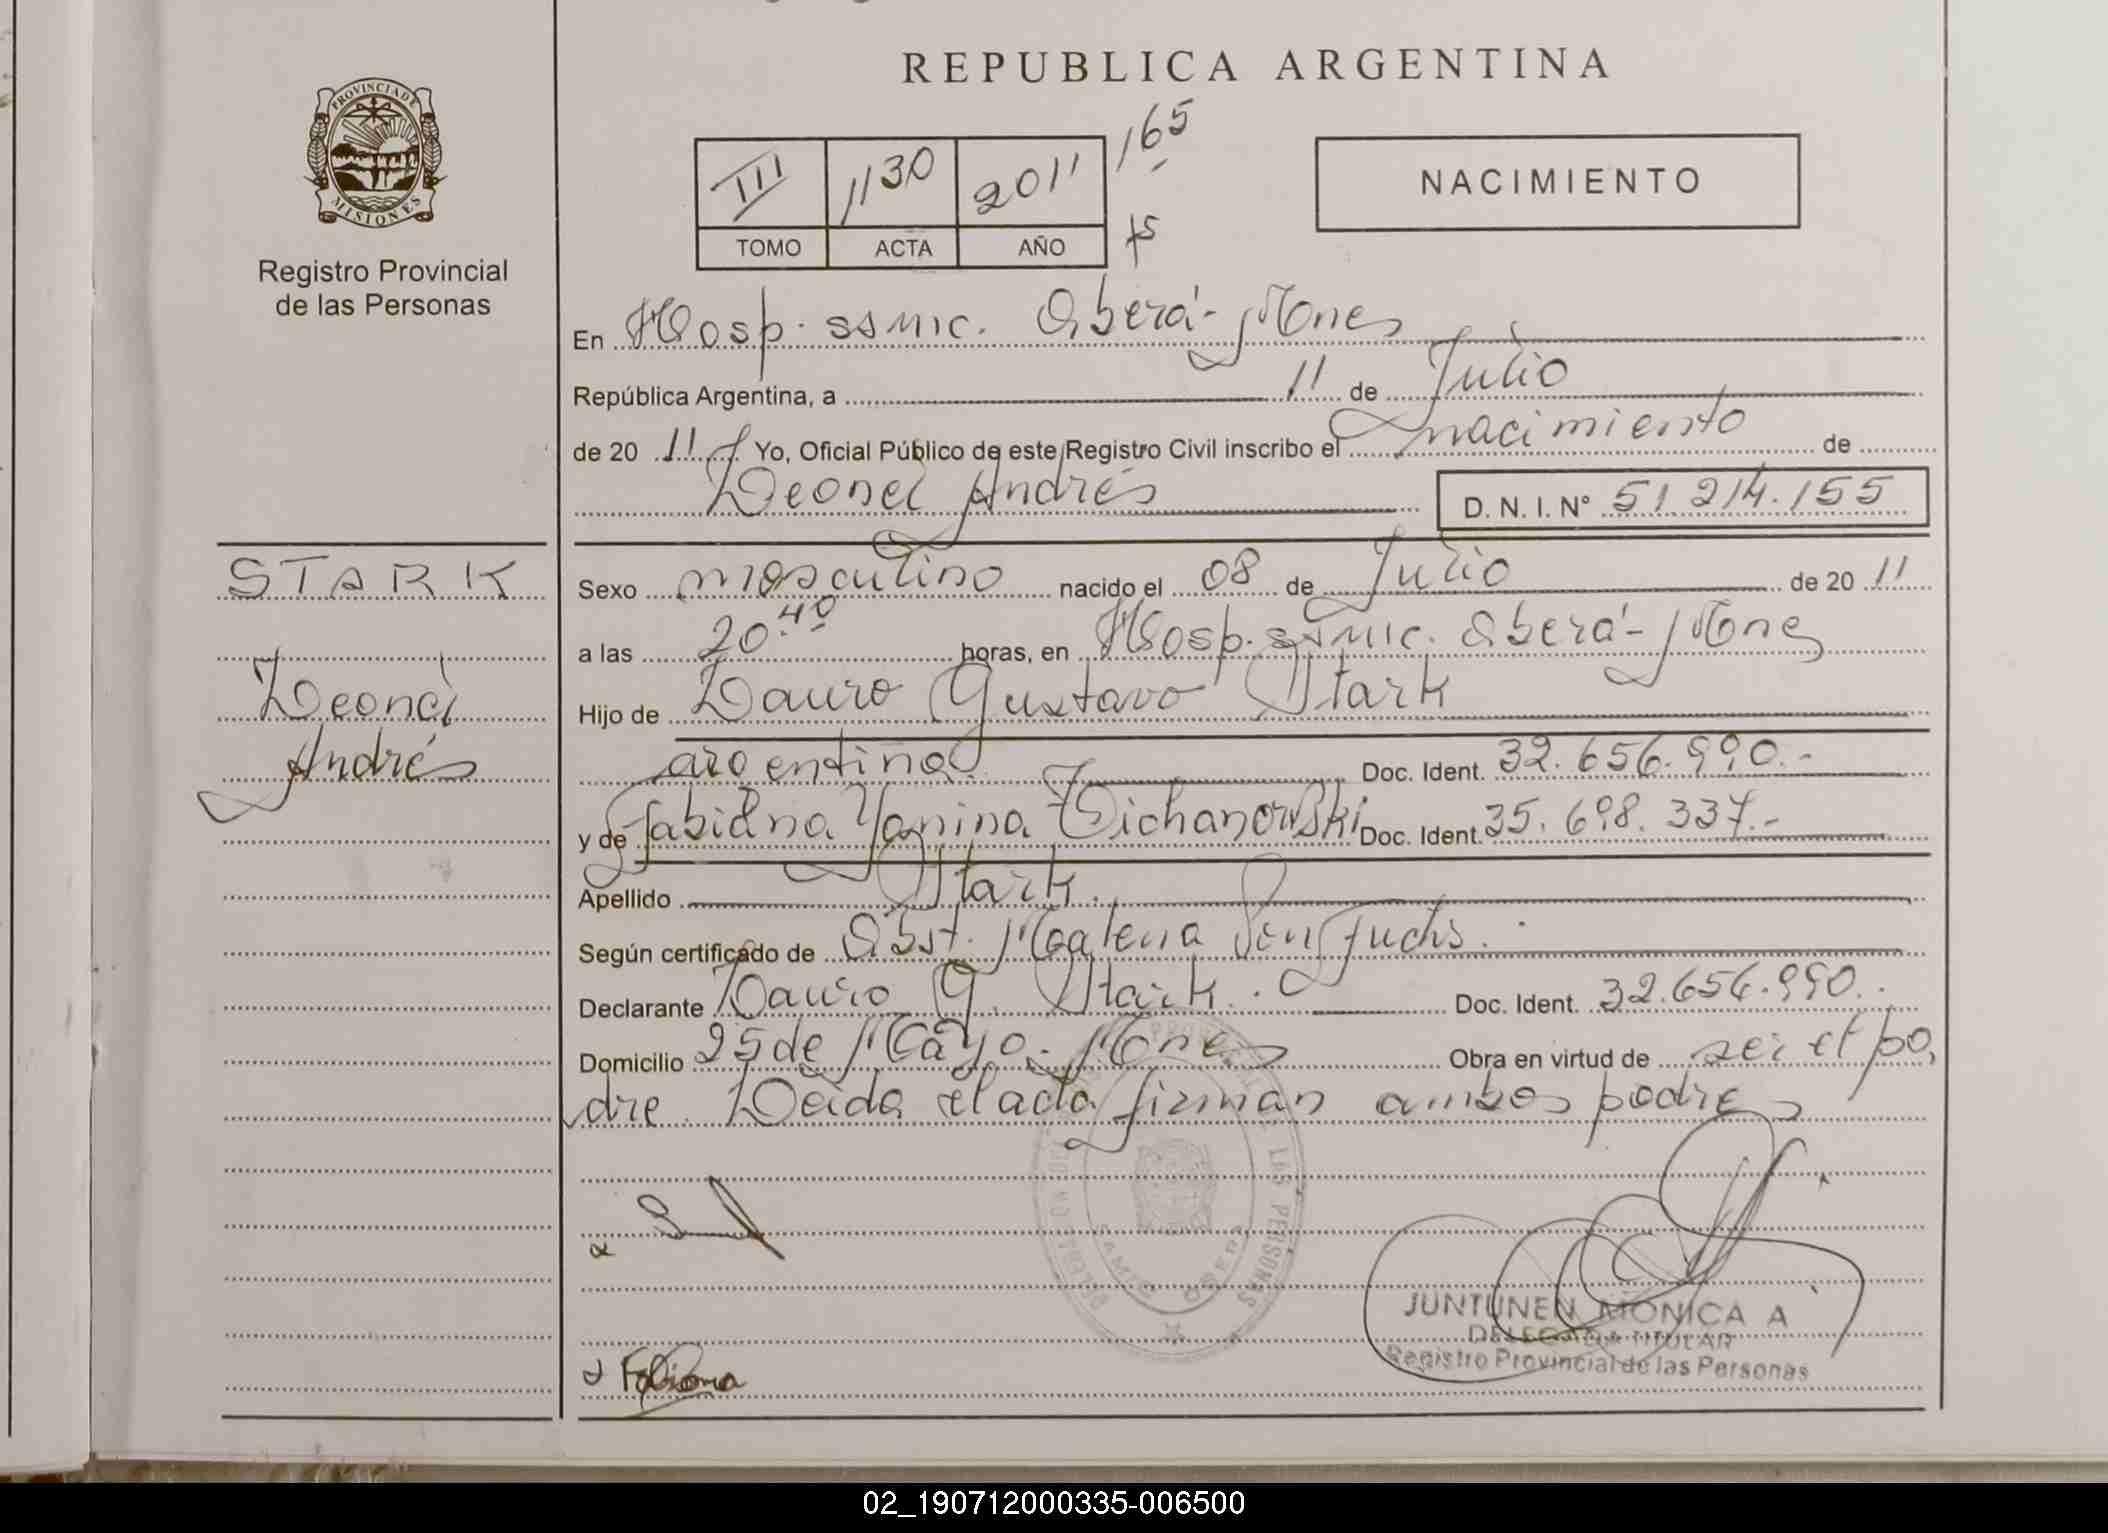 REPUBLICA ARGENTINA
PROVINCIA DE
MISIONES
Registro Provincial
de las Personas
III 1130 2011 165
TOMO ACTA AÑO
NACIMIENTO
En Hosp. SSMIC. Oberá - Mnes
República Argentina, a 11 de Julio
de 20 11 Yo, Oficial Público de este Registro Civil inscribo el nacimiento de
Leonel Andrés D. N. I. Nº 51.214.155
STARK
Leonel
Andrés
Sexo masculino nacido el 08 de Julio de 20 11
a las 20.40 horas, en Hosp. SSMIC. Oberá - Mnes
Hijo de Lauro Gustavo Stark
argentina Doc. Ident. 32.656.990.-
y de Fabiana Yanina Doc. Ident. 35.698.337.-
Apellido Stark.
Según certificado de Obst.
Declarante Lauro G. Stark. Doc. Ident. 32.656.990.
Domicilio 25 de Mayo - Mnes Obra en virtud de ser el pa,
dre. Leida el acta firman ambos padres
LAS PERSONAS
SAMIC OBERA
Fabiana
JUNTUNEN MONICA A
DELEGADA TITULAR
Registro Provincial de las Personas
02_190712000335-006500